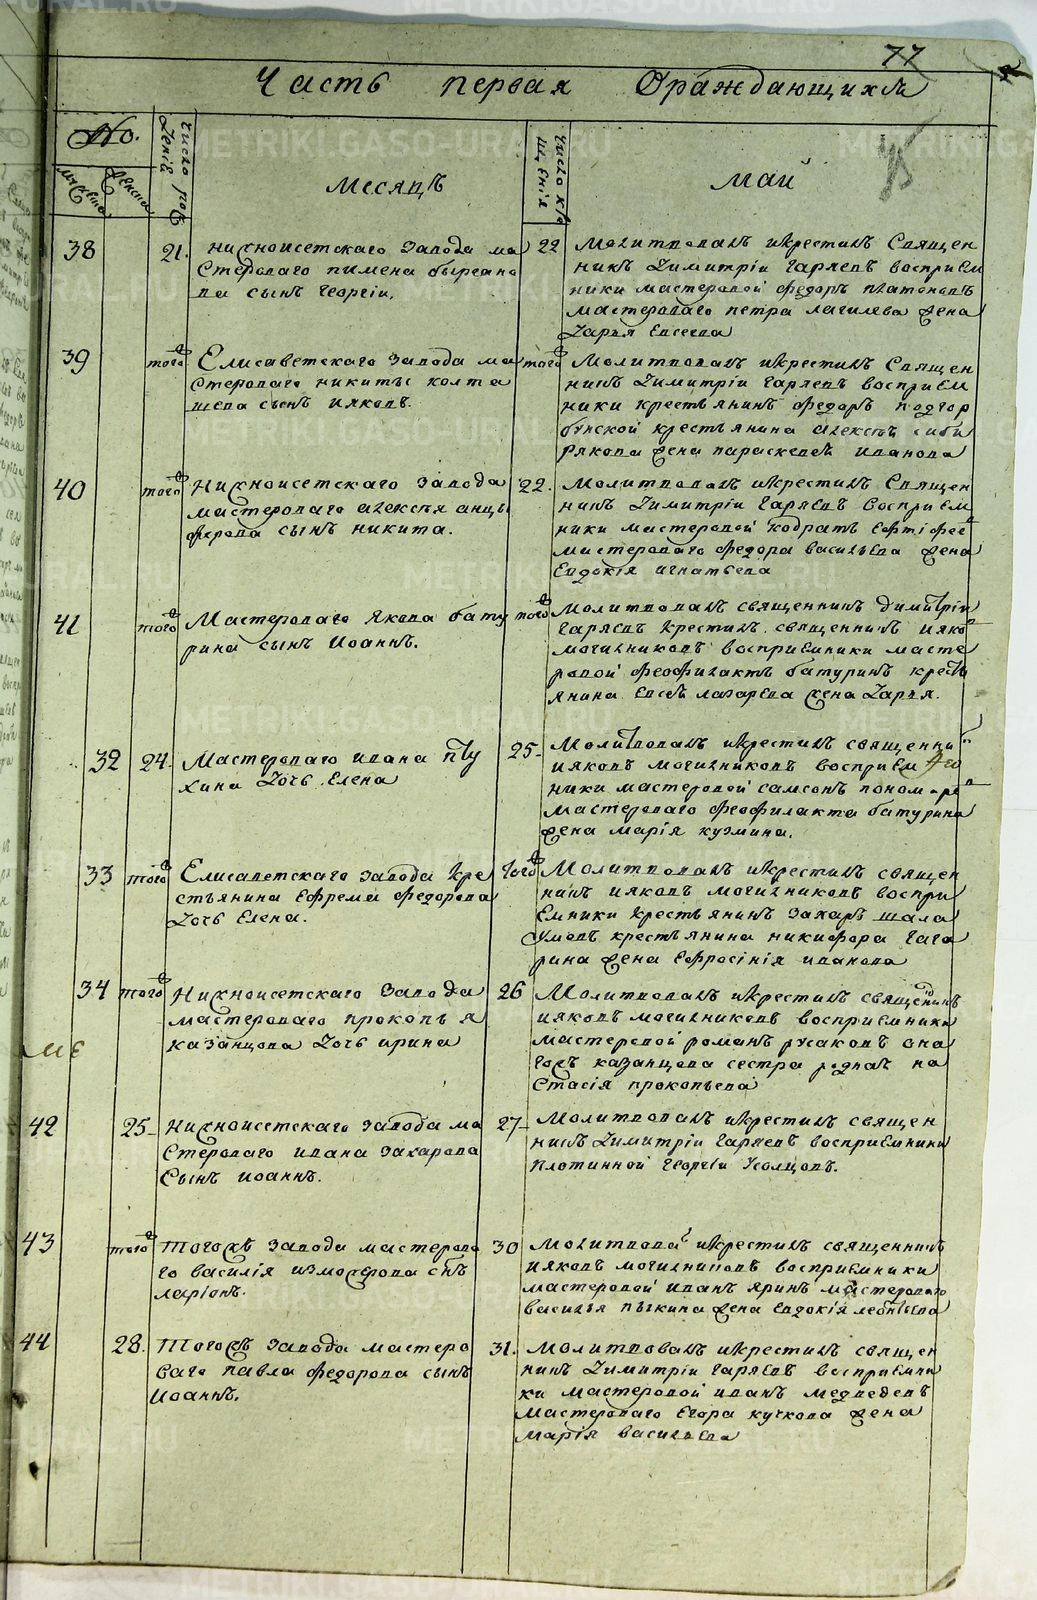 77
Часть первая Ораждающихся
No.
мужеска
женска
число рож
деніѧ
Месяцъ
число кре
щенія
Май
38 21. Нижноисетскаго завода ма
стероваго Пимена
ва сынъ Георгіи.
22 Молитвовалъ икрестилъ Священ
никъ Димитріи Гаряевъ восприем
ники мастеровой Федоръ Платоновъ
мастероваго Петра жена
Дарья Евсеева
39 того Елисаветскаго завода ма
стероваго Никиты Колта
шева сынъ Ияковъ.
того Молитвовалъ икрестилъ Священ
никъ Димитріи Гаряевъ восприем
ники крестьянинъ Федоръ Подгор
бунской крестьянина Алексея Сиби
рякова жена Параскевея Иванова
40 того Нижноисетскаго завода
мастероваго Алексея Анцы
ферова сынъ Никита.
22. Молитвовалъ икрестилъ Священ
никъ Димитріи Гаряевъ восприем
ники мастеровой Кодратъ
мастероваго Федора Васильева жена
Евдокія Игнатьева
41 того Мастероваго Якова Бату
рина сынъ Иоаннъ.
того Молитвовалъ священникъ Димитріи
Гаряевъ крестилъ священникъ Ияковъ
Могильниковъ восприемники масте
ровой Феофилактъ Батуринъ кресть
янина Евсея Лазарева жена Дарья.
32 24. Мастероваго Ивана Пту
хина дочь Елена
25 Молитвовалъ икрестилъ священникъ
Ияковъ Могильниковъ восприем
ники мастеровой Самсонъ Пономарев
мастероваго Феофилакта Батурина
жена Марія Кузмина.
33 того Елисаветскаго завода кре
стьянина Ефрема Федорова
дочь Елена.
того Молитвовалъ икрестилъ священ
никъ Ияковъ Могильниковъ воспри
емники крестьянинъ Захаръ Шала
умовъ крестьянина Никифора Гага
рина жена Ефросінія Иванова
34 того Нижноисетскаго завода
мастероваго Прокопья
Казанцова дочь Ирина
26 Молитвовалъ икрестилъ священникъ
Ияковъ Могильниковъ восприемники
мастеровой Романъ Русаковъ она
гожъ Казанцова сестра родная На
стасія Прокопьева
42 25 Нижноисетскаго завода ма
стероваго Ивана Захарова
сынъ Иоаннъ.
27 Молитвовалъ икрестилъ священ
никъ Димитріи Гаряевъ восприемники
плотинной Георгіи Усолцовъ.
43 того тогожъ завода мастерова
го Василія Изможерова снъ
Ларіонъ.
30 Молитвовал икрестилъ священникъ
Ияковъ Могильниковъ восприемники
мастеровой Иванъ Яринъ мастероваго
Василья Пыкина жена Евдокія Леонтьева
44 28. тогожъ завода мастеро
ваго Павла Федорова сынъ
Иоаннъ.
31. Молитвовалъ икрестилъ священ
никъ Димитріи Гаряевъ восприемни
ки мастеровой Иванъ Медведевъ
мастероваго Егора Кучкова жена
Марія Васильева